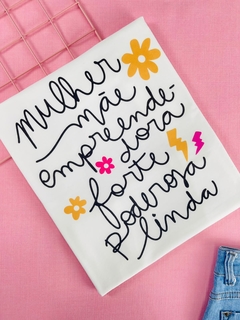 mulher
mãe
empreende-
dora
forte
poderosa
linda